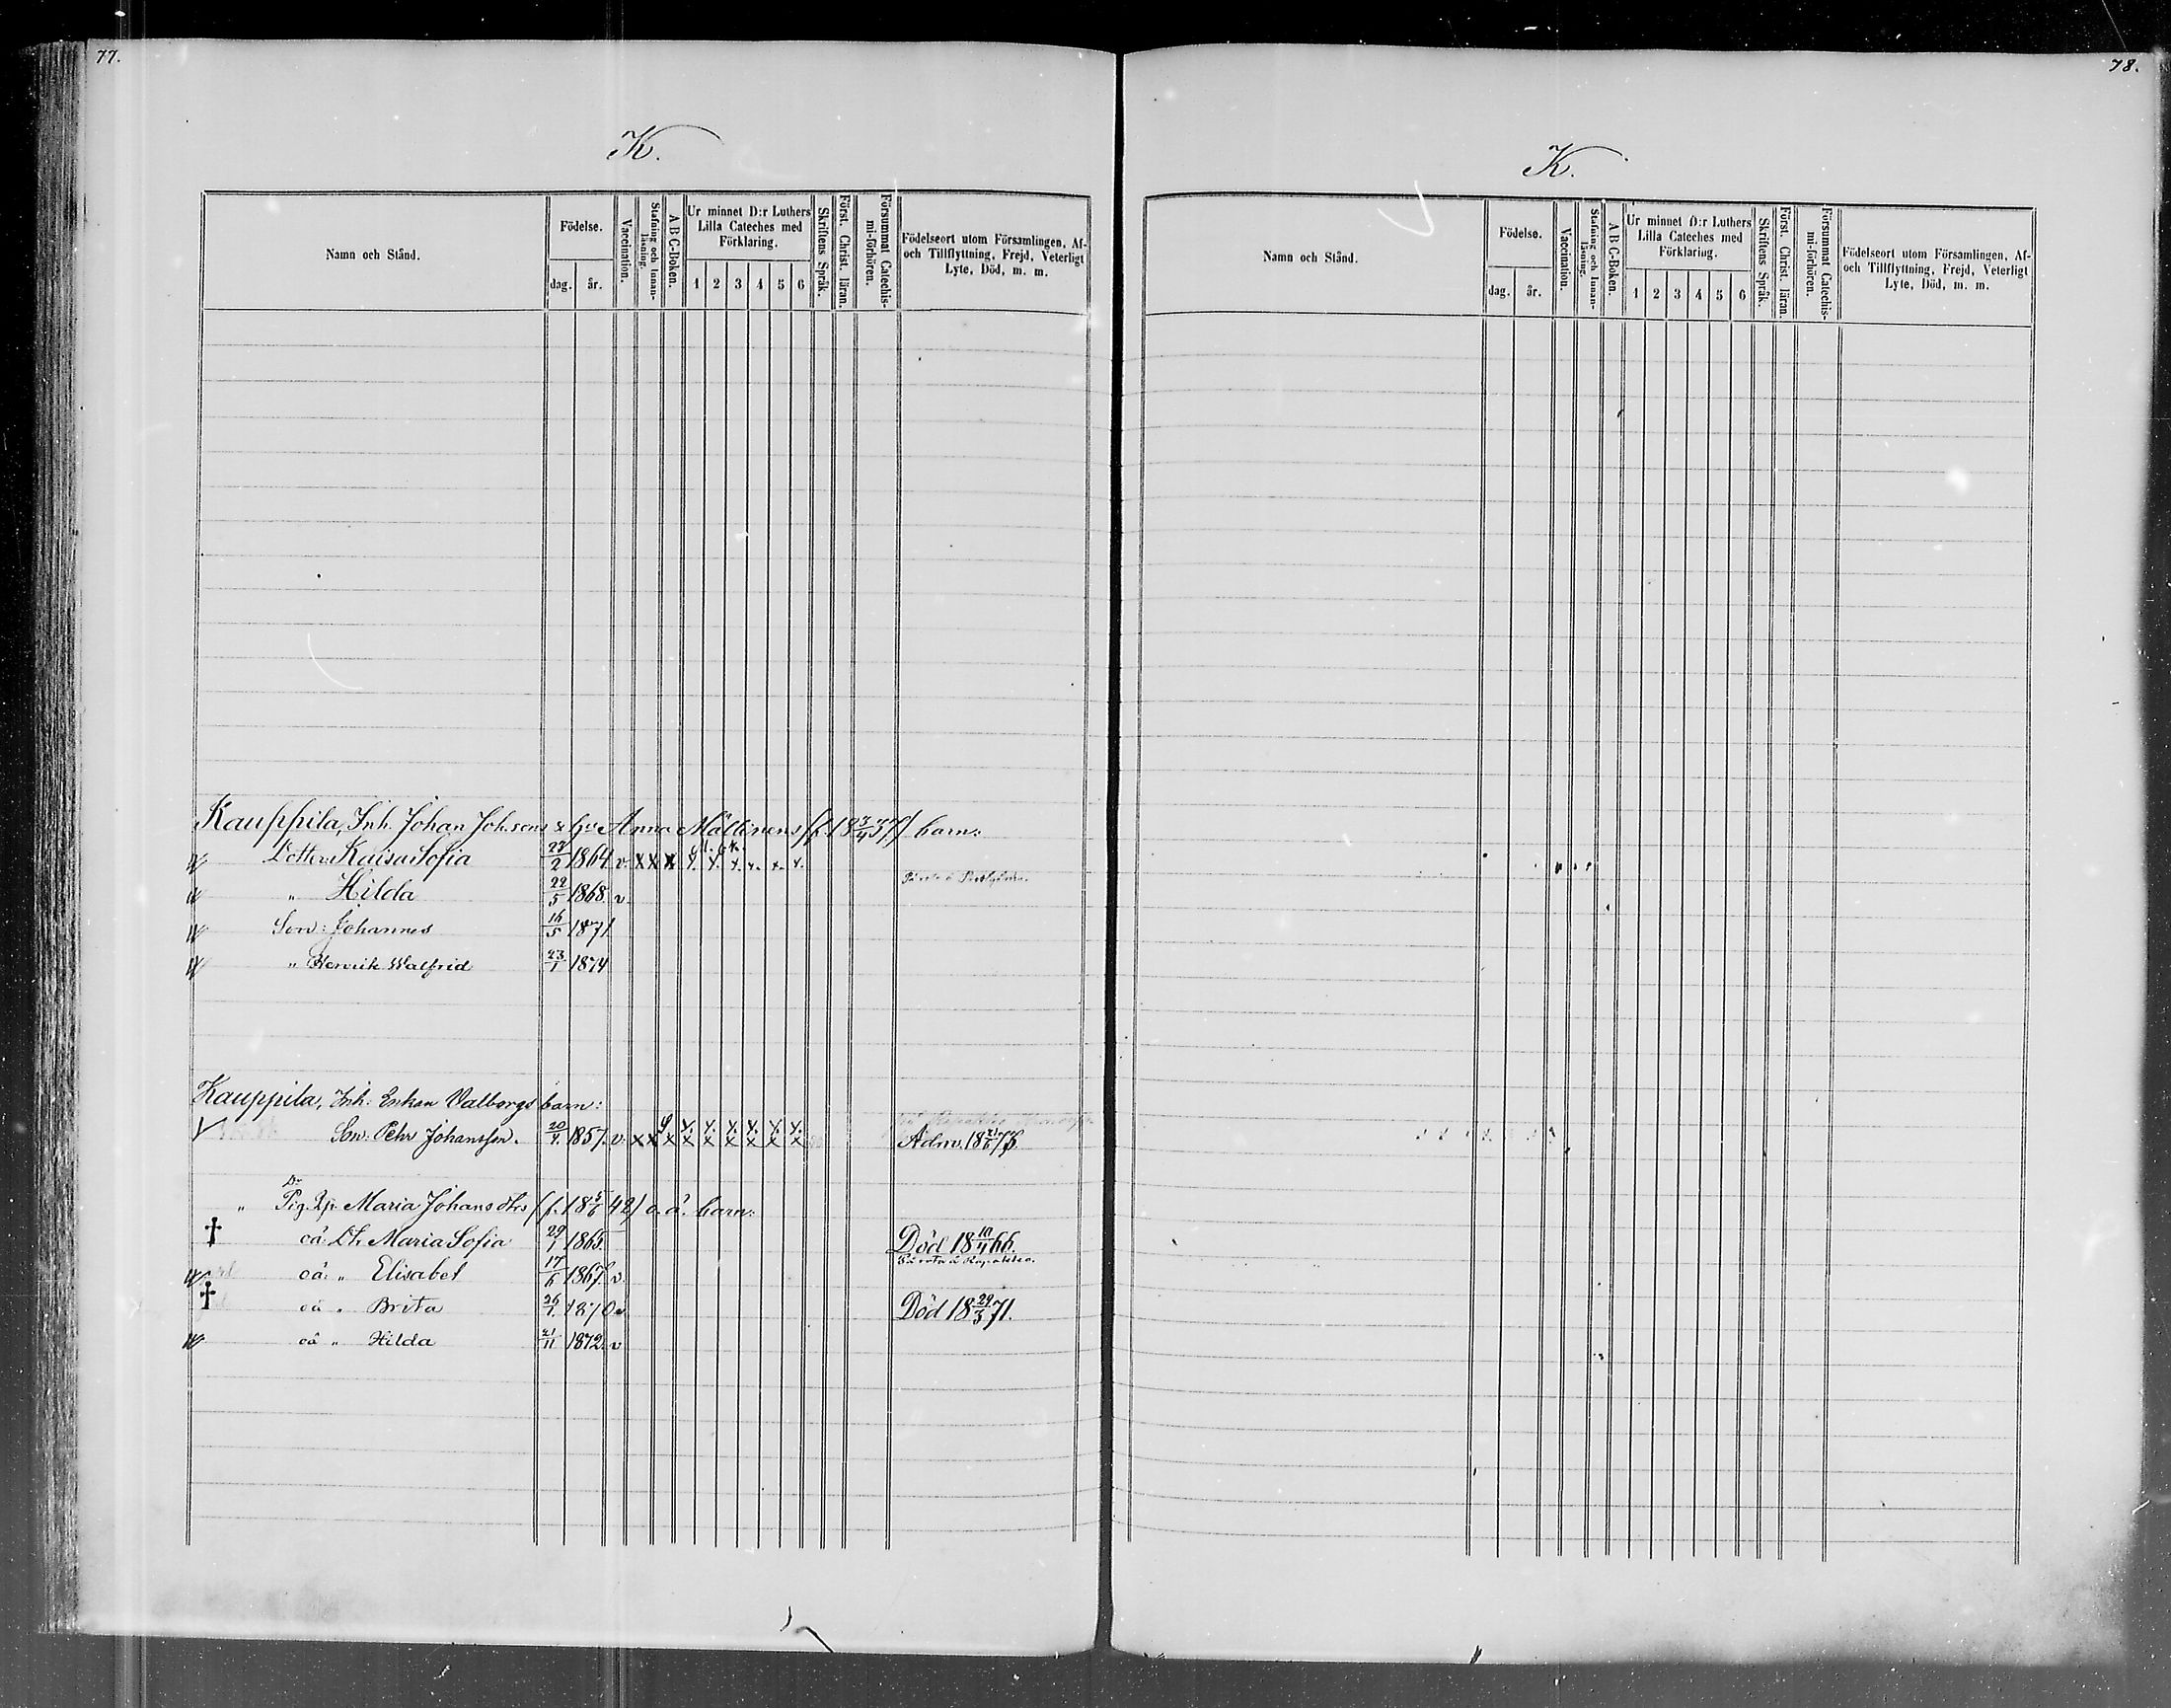 77.
K.
Namn och Stånd.
Födelse.
dag. år.
Vaccination.
Stafning och Innanläsning.
A B C-Boken.
Ur minnet D:r Luthers
Lilla Cateches med
Förklaring.
1 2 3 4 5 6
Skriftens Språk.
Först. Christ. läran.
Försummat Catechismi-förhören.
Födelseort utom Församlingen, Af-
och Tillflyttning, Frejd, Veterligt
Lyte, Död, m. m.
Kauppila, Inh. Johan Johsons & hu Anna Mältinens (f. 18 3/4 37) barn:
Dotter: Kaisa Sofia 23/2 1864 v. x x x
" Hilda 22/5 1868 v.
Son: Johannes 16/5 1871
" Henrik Walfrid 23/1 1874
Kauppila, Inh: Enkan Valborgs barn:
Son: Pehr Johansson. 20/4. 1857. v. x x x x x x x x x Adm. 18
" Pig. Maria Johansdtrs (f. 18 5/6 42) o. ä. barn:
† oä: Dr. Maria Sofia 29/1 1865. Död 18 10/4 66.
oä: " Elisabet 17/6 1867. v.
† oä " Brita 26/4. 1870 v. Död 18 29/3 71.
oä " Hilda 21/11 1872. v
78.
K.
Namn och Stånd.
Födelse.
dag. år.
Vaccination.
Stafning och Innanläsning.
A B C-Boken.
Ur minnet D:r Luthers
Lilla Cateches med
Förklaring.
1 2 3 4 5 6
Skriftens Språk.
Först. Christ. läran.
Försummat Catechismi-förhören.
Födelseort utom Församlingen, Af-
och Tillflyttning, Frejd, Veterligt
Lyte, Död, m. m.